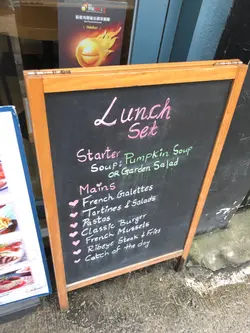 Lunch
Set
Starter
Soup: Pumpkin Soup
OR Garden Salad
Mains
French Galettes
Tartines & Salads
Pastas
Classic Burger
French Mussels
Ribeye Steak & Fries
Catch of the day